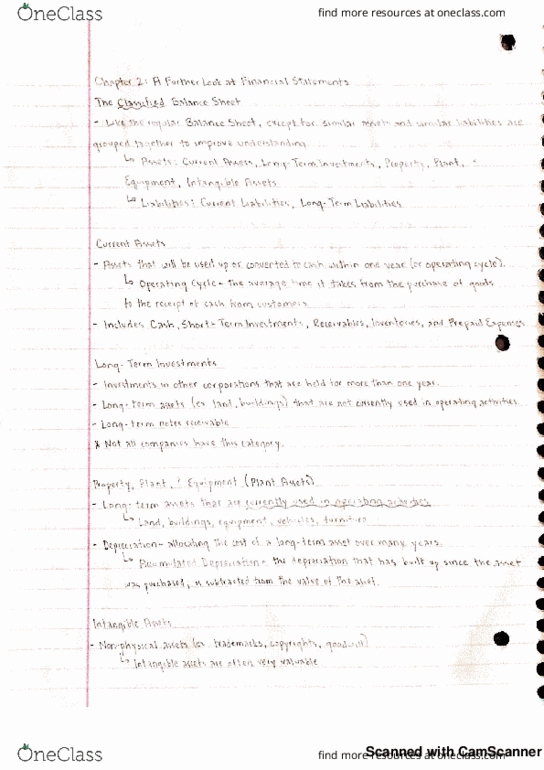 OneClass
find more resources at oneclass.com
Chapter 2: A Further Look at Financial Statements
The Classified Balance Sheet
- Like the regular Balance Sheet, except for similar assets and similar liabilities are
grouped together to improve understanding.
↳ Assets: Current Assets, Long-Term Investments, Property, Plant, &
Equipment, Intangible Assets
↳ Liabilities: Current Liabilities, Long-Term Liabilities
Current Assets
- Assets that will be used up or converted to cash within one year (or operating cycle).
↳ Operating Cycle - the average time it takes from the purchase of goods
to the receipt of cash from customers
- Includes Cash, Short-Term Investments, Receivables, Inventories, and Prepaid Expenses
Long-Term Investments
- Investments in other corporations that are held for more than one year.
- Long-term assets (ex. land, buildings) that are not currently used in operating activities
- Long-term notes receivable
* Not all companies have this category.
Property, Plant, & Equipment (Plant Assets)
- Long-term assets that are currently used in operating activities
↳ Land, buildings, equipment, vehicles, furniture
- Depreciation - allocating the cost of a long-term asset over many years.
↳ Accumulated Depreciation - the depreciation that has built up since the asset
was purchased, is subtracted from the value of the asset.
Intangible Assets
- Non-physical assets (ex. trademarks, copyrights, goodwill)
↳ Intangible assets are often very valuable
OneClass
find more resources at oneclass.com
Scanned with CamScanner